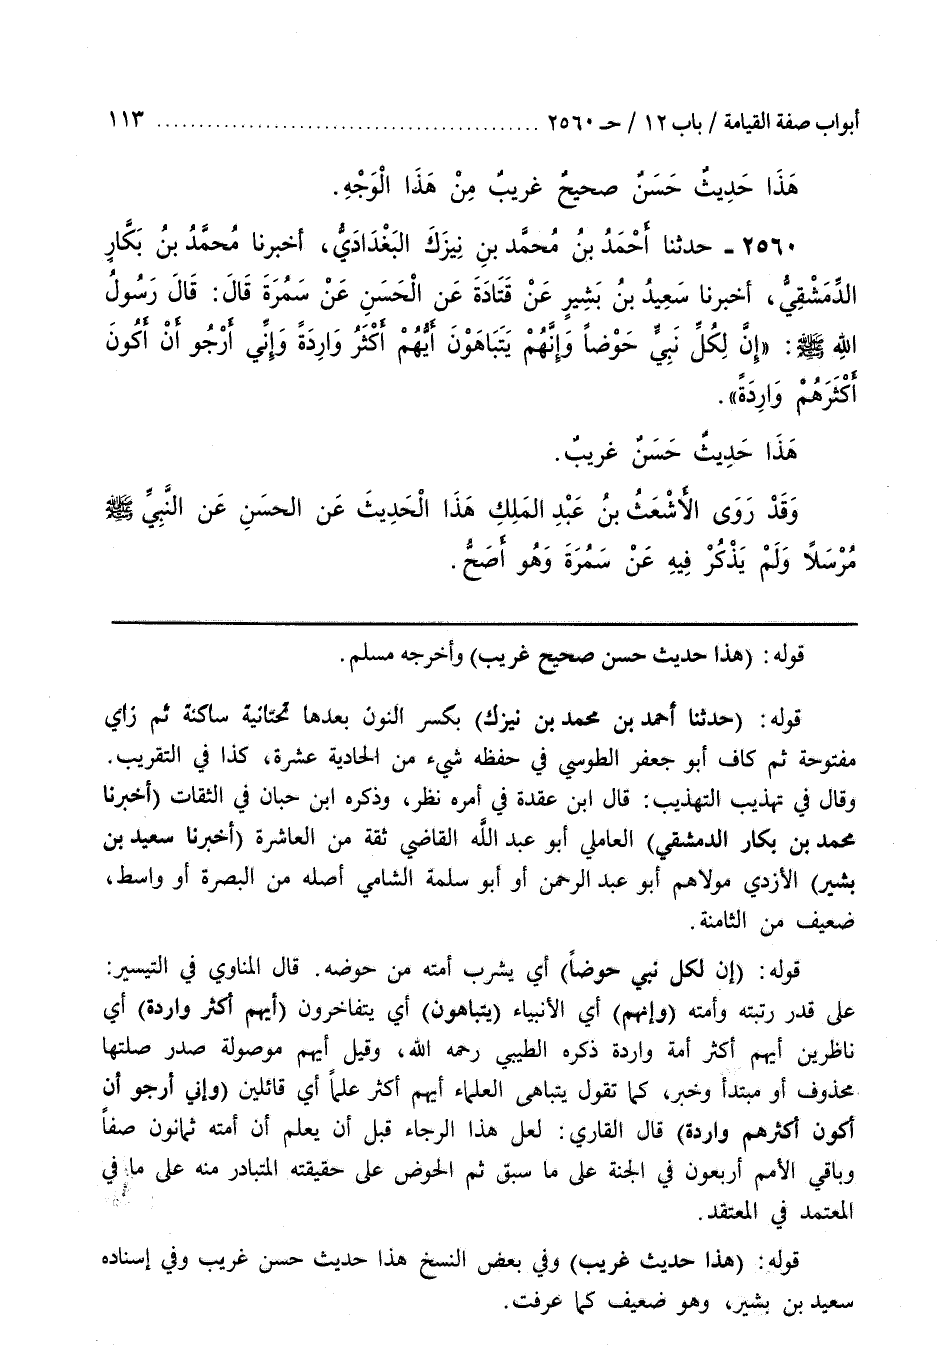 أبواب صفة القيامة / باب ١٢ / حـ ٢٥٦٠ ........................................ ١١٣
هَذَا حَدِيثٌ حَسَنٌ صحيحٌ غريبٌ مِنْ هَذَا الْوَجْهِ.
٢٥٦٠ ـ حدثنا أَحْمَدُ بنُ مُحمَّد بنِ نِيزَكَ البَغْدَادَيُّ، أخبرنا مُحمَّدُ بنُ بَكَّارٍ
الدِّمَشْقِيُّ، أخبرنا سَعِيدُ بنُ بَشِيرٍ عَنْ قَتَادَةَ عَن الْحَسَنِ عَنْ سَمُرَةَ قَالَ: قَالَ رَسُولُ
الله ﷺ: «إنَّ لِكُلِّ نَبِيٍّ حَوْضاً وَإنَّهُمْ يَتَبَاهَوْنَ أَيُّهُمْ أَكْثَرُ وَارِدَةً وَإنِّي أَرْجُو أَنْ أَكُونَ
أَكْثَرَهُمْ وَارِدَةً».
هَذَا حَدِيثٌ حَسَنٌ غريبٌ.
وَقَدْ رَوَى الْأَشْعَثُ بنُ عَبْدِ المَلِكِ هَذَا الْحَدِيثَ عَن الحسَنِ عَن النَّبِيِّ ﷺ
مُرْسَلًا وَلَمْ يَذْكُرْ فِيهِ عَنْ سَمُرَةَ وَهُو أَصَحُّ.
قوله: (هذا حديث حسن صحيح غريب) وأخرجه مسلم.
قوله: (حدثنا أحمد بن محمد بن نيزك) بكسر النون بعدها تحتانية ساكنة ثم زاي
مفتوحة ثم كاف أبو جعفر الطوسي في حفظه شيء من الحادية عشرة، كذا في التقريب.
وقال في تهذيب التهذيب: قال ابن عقدة في أمره نظر، وذكره ابن حبان في الثقات (أخبرنا
محمد بن بكار الدمشقي) العاملي أبو عبد اللَّه القاضي ثقة من العاشرة (أخبرنا سعيد بن
بشير) الأزدي مولاهم أبو عبد الرحمن أو أبو سلمة الشامي أصله من البصرة أو واسط،
ضعيف من الثامنة.
قوله: (إن لكل نبي حوضاً) أي يشرب أمته من حوضه. قال المناوي في التيسير:
على قدر رتبته وأمته (وإنهم) أي الأنبياء (يتباهون) أي يتفاخرون (أيهم أكثر واردة) أي
ناظرين أيهم أكثر أمة واردة ذكره الطيبي رحمه الله، وقيل أيهم موصولة صدر صلتها
محذوف أو مبتدأ وخبر، كما تقول يتباهى العلماء أيهم أكثر علماً أي قائلين (وإني أرجو أن
أكون أكثرهم واردة) قال القاري: لعل هذا الرجاء قبل أن يعلم أن أمته ثمانون صفاً
وباقي الأمم أربعون في الجنة على ما سبق ثم الحوض على حقيقته المتبادر منه على ما في
المعتمد في المعتقد.
قوله: (هذا حديث غريب) وفي بعض النسخ هذا حديث حسن غريب وفي إسناده
سعيد بن بشير، وهو ضعيف كما عرفت.